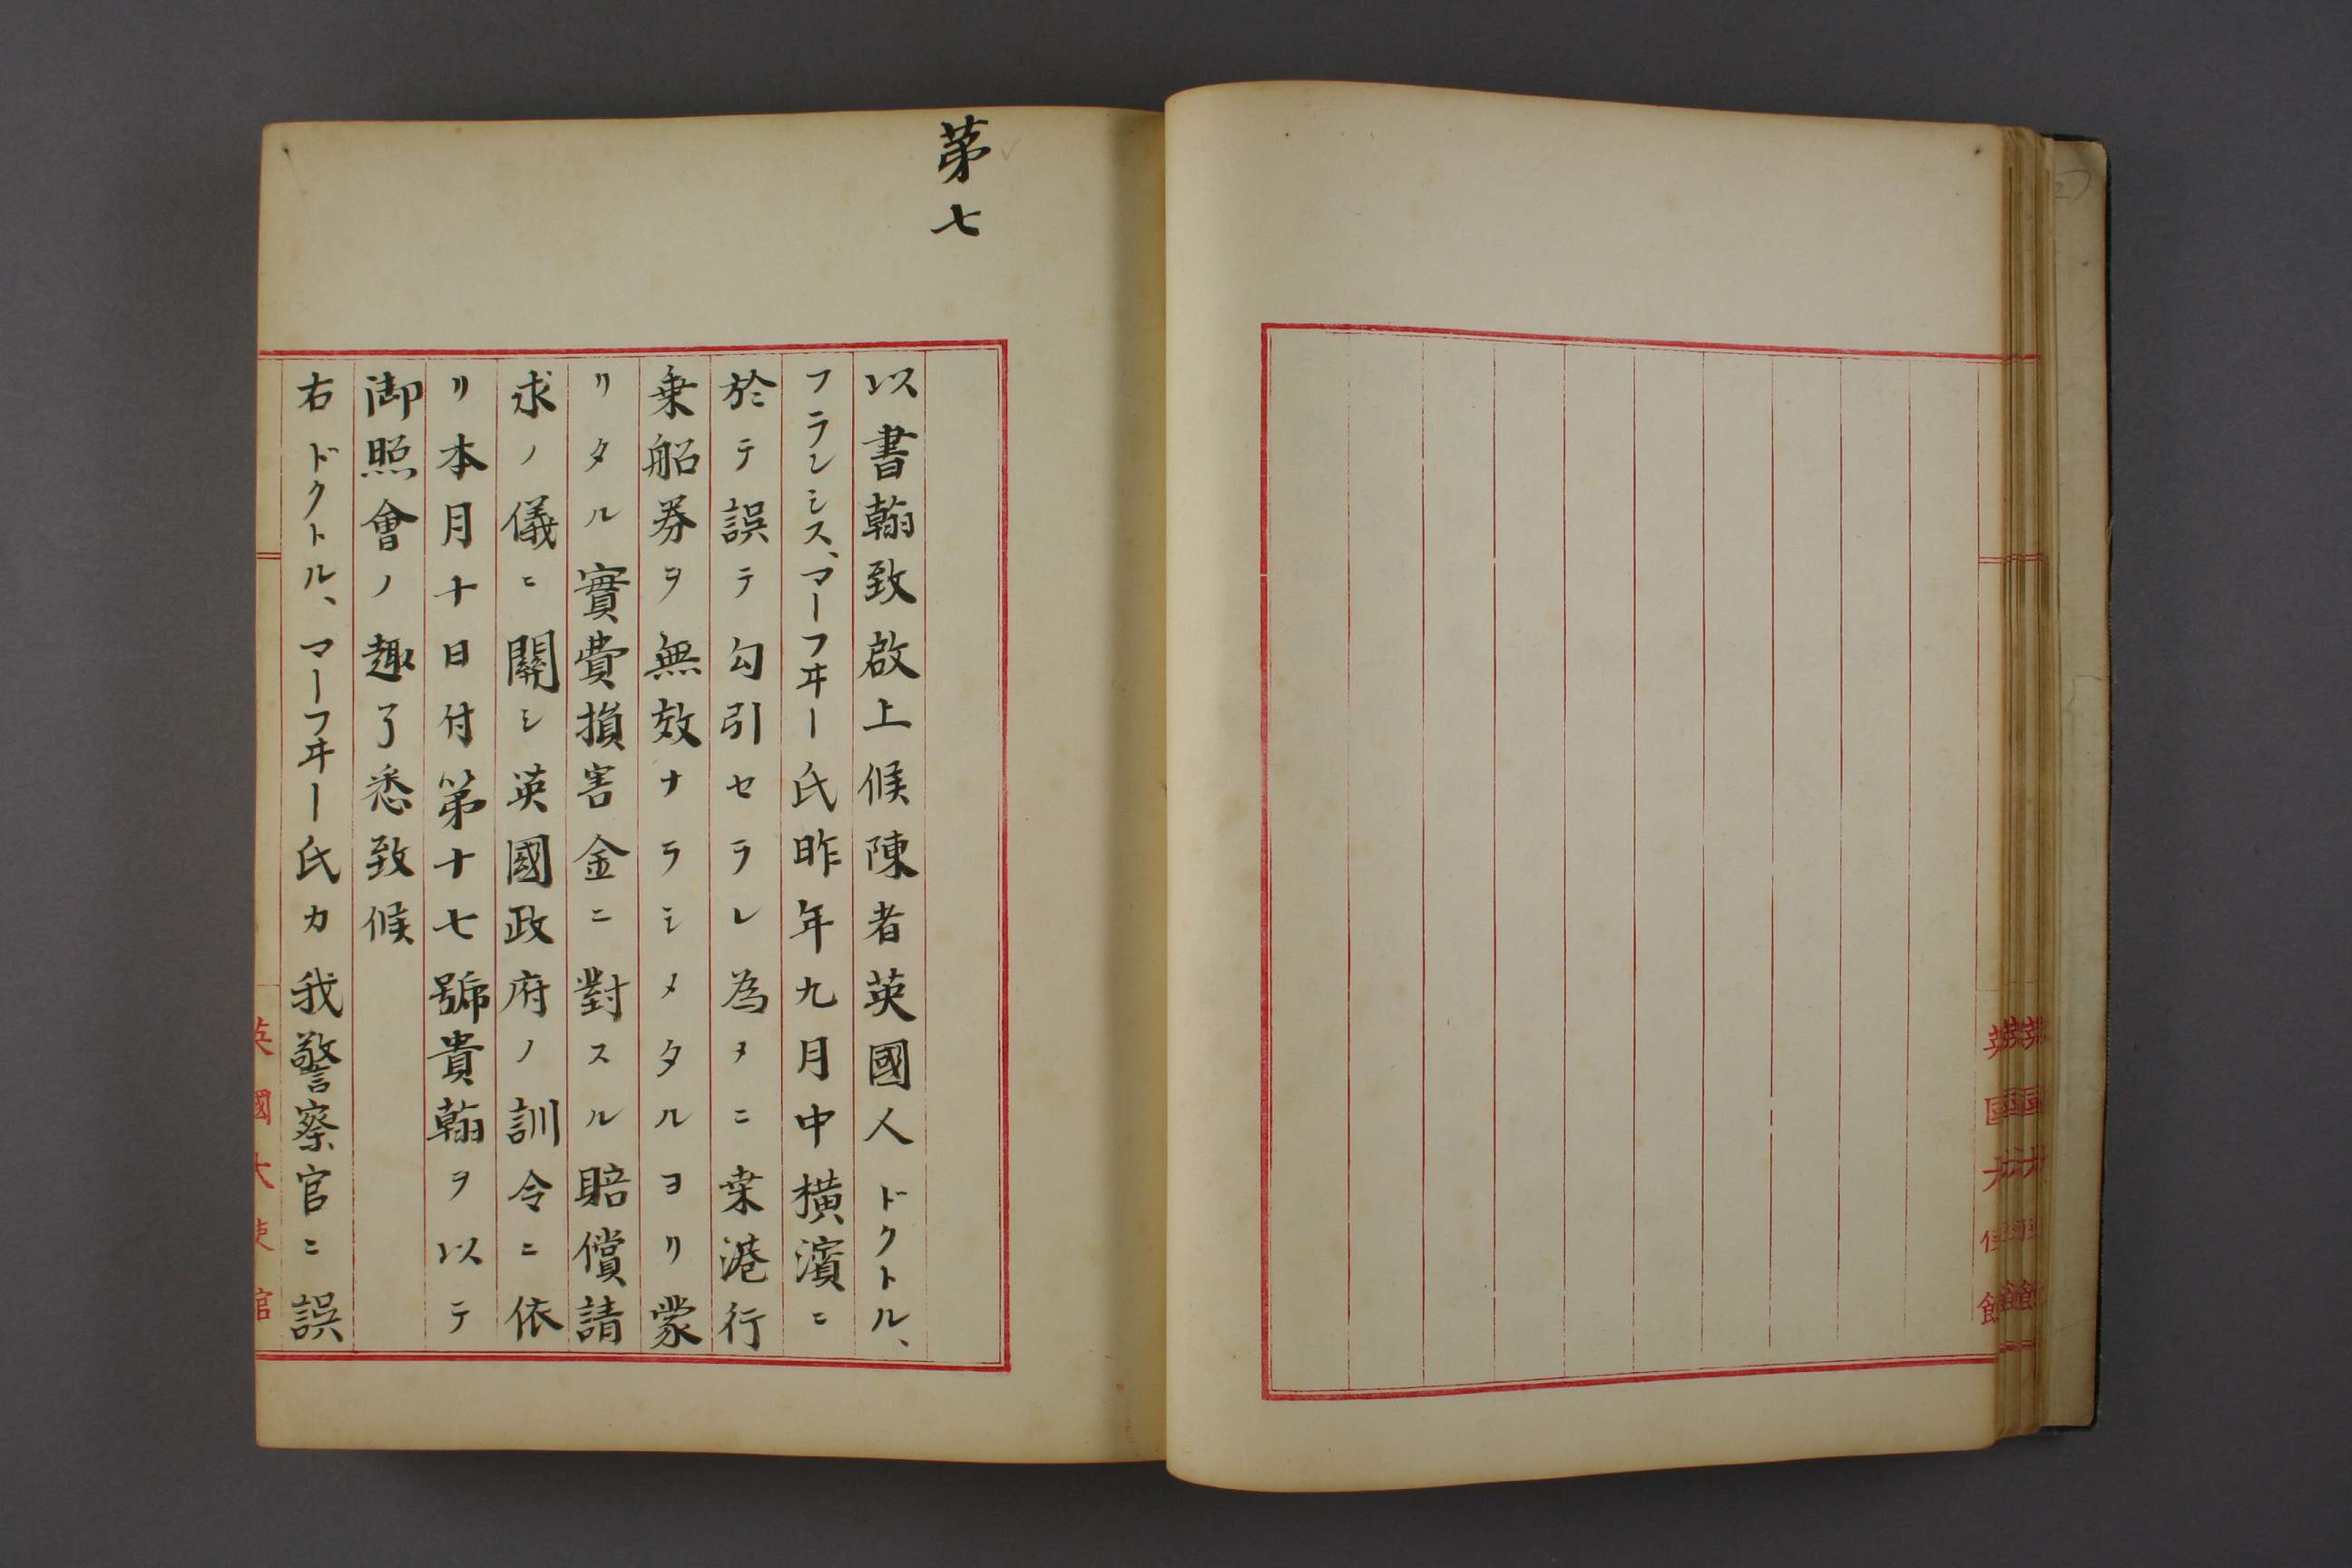 第七
以書翰致啟上候陳者英國人ドクトル、
フランシス、マーフヰー氏昨年九月中横濱ニ
於テ誤テ勾引セラレ為メニ桒港行
乗船券ヲ無效ナラシメタルヨリ蒙
リタル實費損害金ニ對スル賠償請
求ノ儀ニ關シ英國政府ノ訓令ニ依
リ本月十日付第十七號貴翰ヲ以テ
御照會ノ趣了悉致候
右ドクトル、マーフヰー氏カ我警察官ニ誤
英國大使館